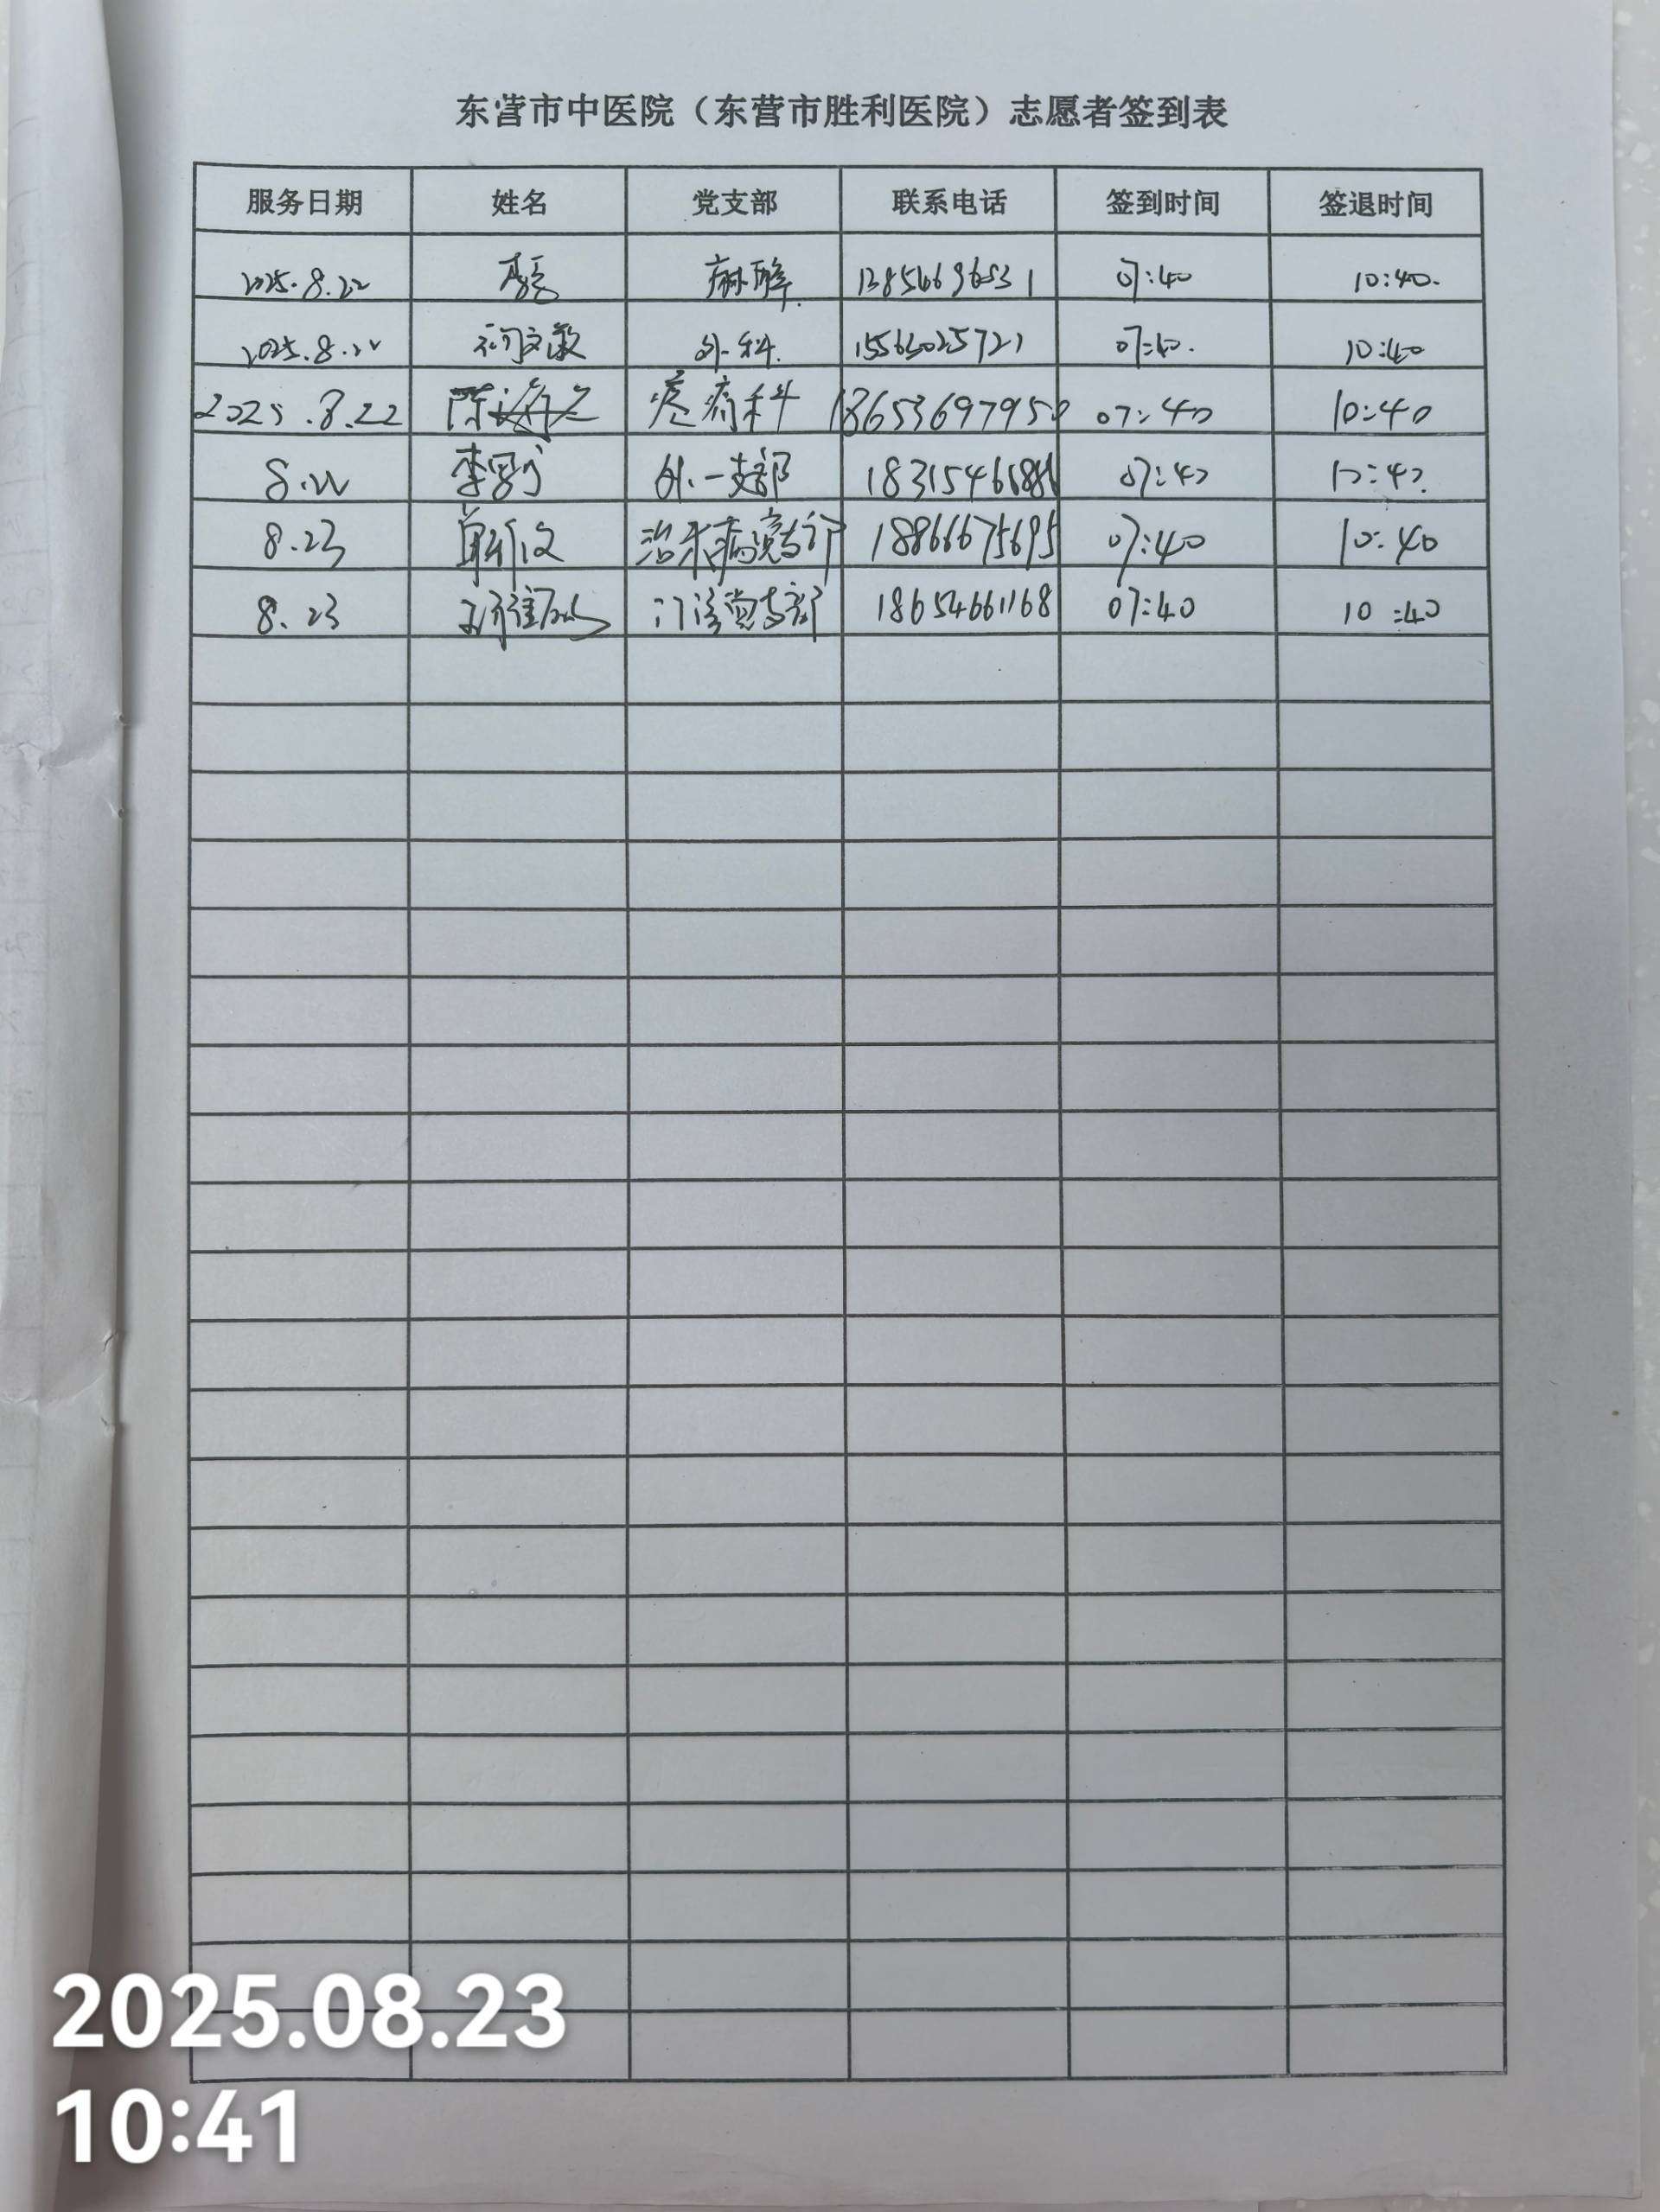 东营市中医院（东营市胜利医院）志愿者签到表
服务日期 姓名 党支部 联系电话 签到时间 签退时间
2025.8.22 麻醉 07:40 10:40.
2025.8.22 文敏 外科. 15563025721 07:40. 10:40
2025.8.22 陈 疼痛科 18653697950 07:40 10:40
8.22 李 外一支部 07:40 10:40.
8.23 单 治未病党支部 18866675695 07:40 10:40
8.23 门诊党支部 18654661168 07:40 10:40
2025.08.23
10:41